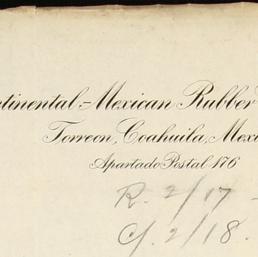 ntinental-Mexican Rubber
Torreon, Coahuila, Mexi
Apartado Postal 176
R. 2/17 -
Cf. 2/18.